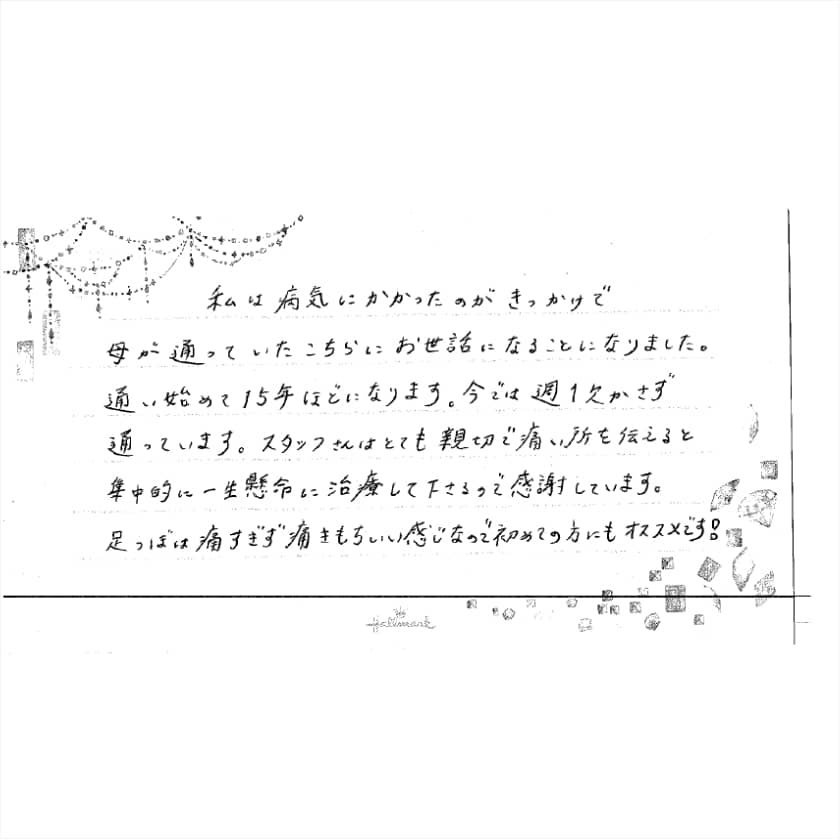 私は病気にかかったのがきっかけで
母が通っていたこちらにお世話になることになりました。
通い始めて15年ほどになります。今では週1欠かさず
通っています。スタッフさんはとても親切で痛い所を伝えると
集中的に一生懸命に治療して下さるので感謝しています。
足つぼは痛すぎず痛きもちいい感じなので初めての方にもオススメです!
Hallmark